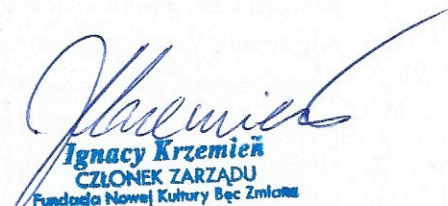 IKrzemień
Ignacy Krzemień
CZŁONEK ZARZĄDU
Fundacja Nowej Kultury Bęc Zmiana